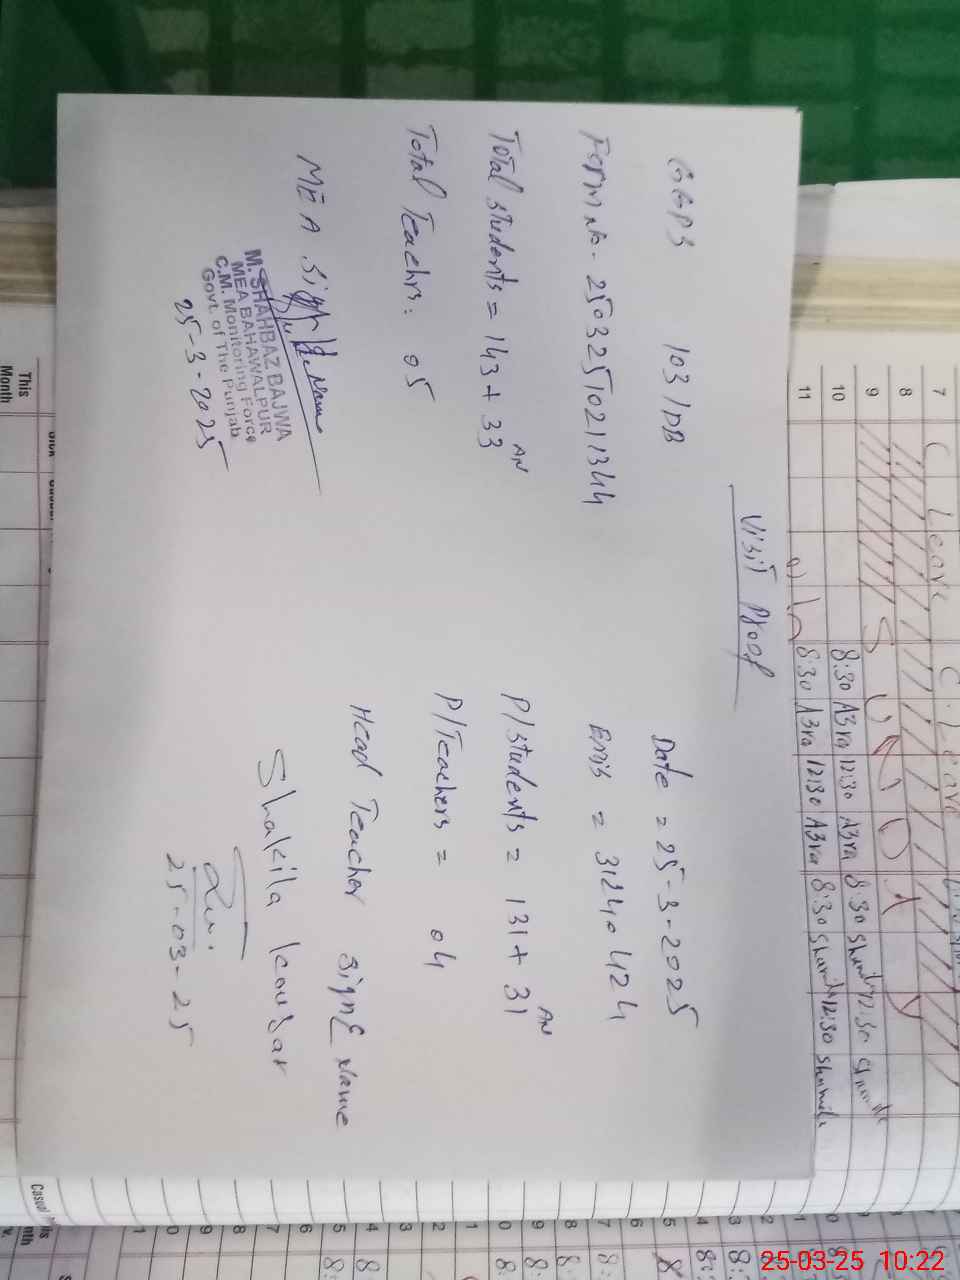 Visit Proof
GGPS 103/DB
Date = 25-3-2025
Form No- 25032510211344
Emis = 31240424
Total students = 143 + 33 AN
P/students = 131 + 31 AN
Total Teachrs: 05
P/Teachers = 04
MEA Sign & Name
Head Teacher sign & Name
M. SHAHBAZ BAJWA
MEA BAHAWALPUR
C.M. Monitoring Force
Govt. of The Punjab
25-3-2025
Shakila Kousar
25-03-25
7 C Leave C. Leave
8
9 S U N D A Y
10 8:30 Azra 12:30 Azra 8:30
11 8:30 Azra 12:30 Azra 8:30 12:30
This
Month
Casual
25-03-25 10:22